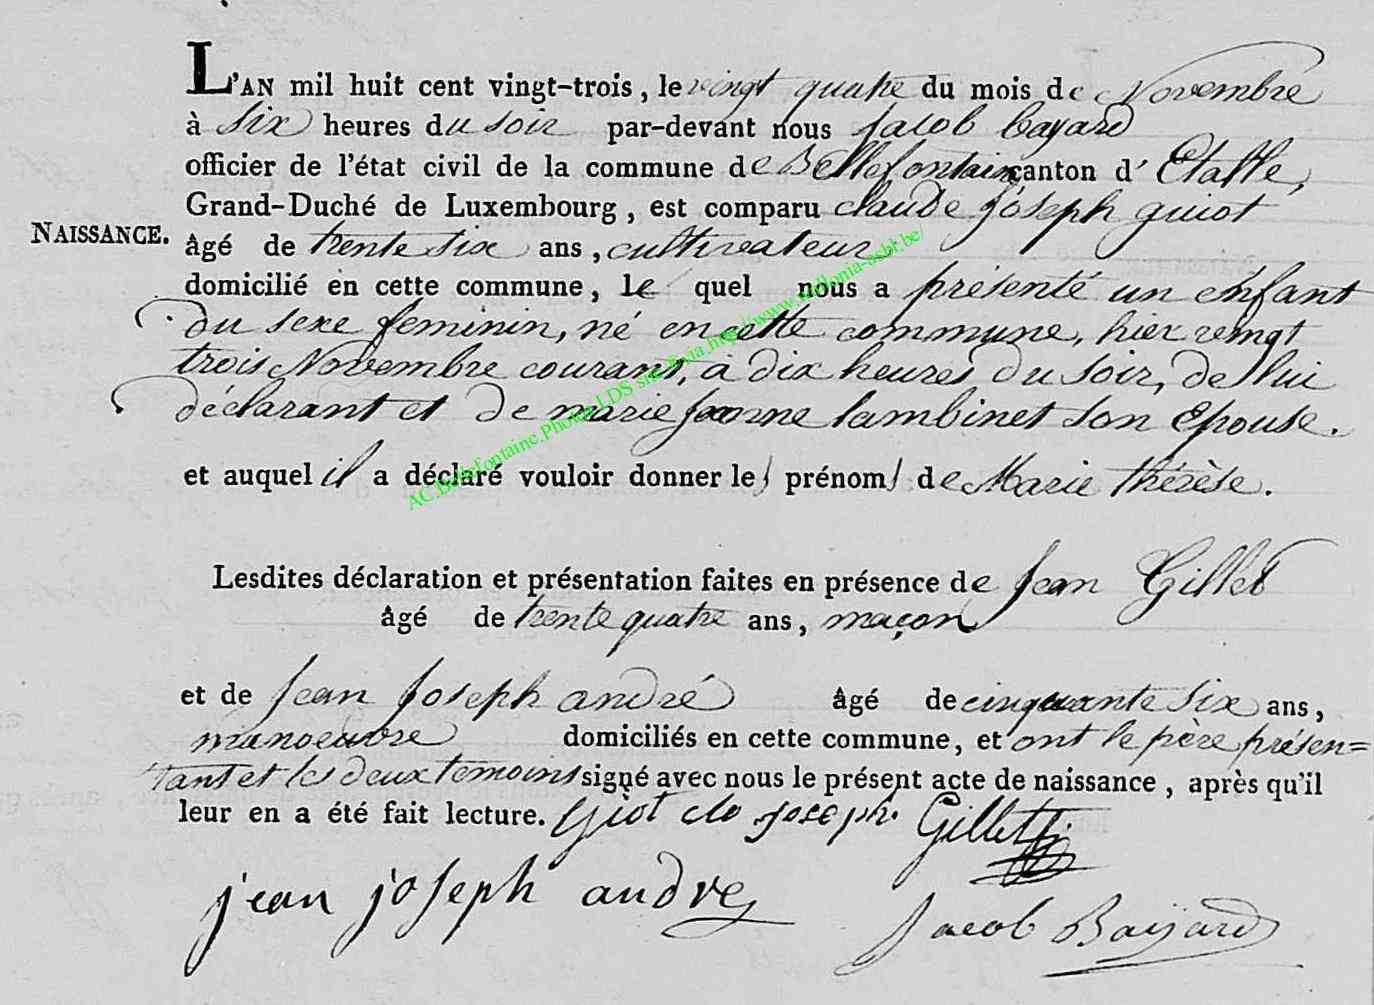 L'AN mil huit cent vingt-trois, le vingt quatre du mois de Novembre
à Six heures du soir par-devant nous Jacob Bayard
officier de l'état civil de la commune de Bellefontaine canton d'Etalle,
Grand-Duché de Luxembourg, est comparu claude Joseph guiot
NAISSANCE.
âgé de trente six ans, cultivateur
domicilié en cette commune, le quel nous a présenté un enfant
du sexe feminin, né en cette commune, hier vingt
trois Novembre courant, à dix heures du soir, de lui
déclarant et de marie Jeanne lambinet son Epouse.
et auquel il a déclaré vouloir donner les prénoms de Marie thérèse.
Lesdites déclaration et présentation faites en présence de Jean Gillet
âgé de trente quatre ans, maçon
et de Jean Joseph andré âgé de cinquante six ans,
manoeuvre domiciliés en cette commune, et ont le père présen=
tant et les deux temoins signé avec nous le présent acte de naissance, après qu'il
leur en a été fait lecture. Giot clo Joseph. Gillet
jean joseph andre
Jacob Bayard
AC.Bellefontaine.Photos LDS site http://www.wallonia-asbl.be/